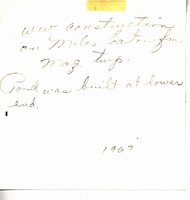 new construction
on Miles Eaton fm.
Maz. twp.
Pond was built at lower
end.
1967